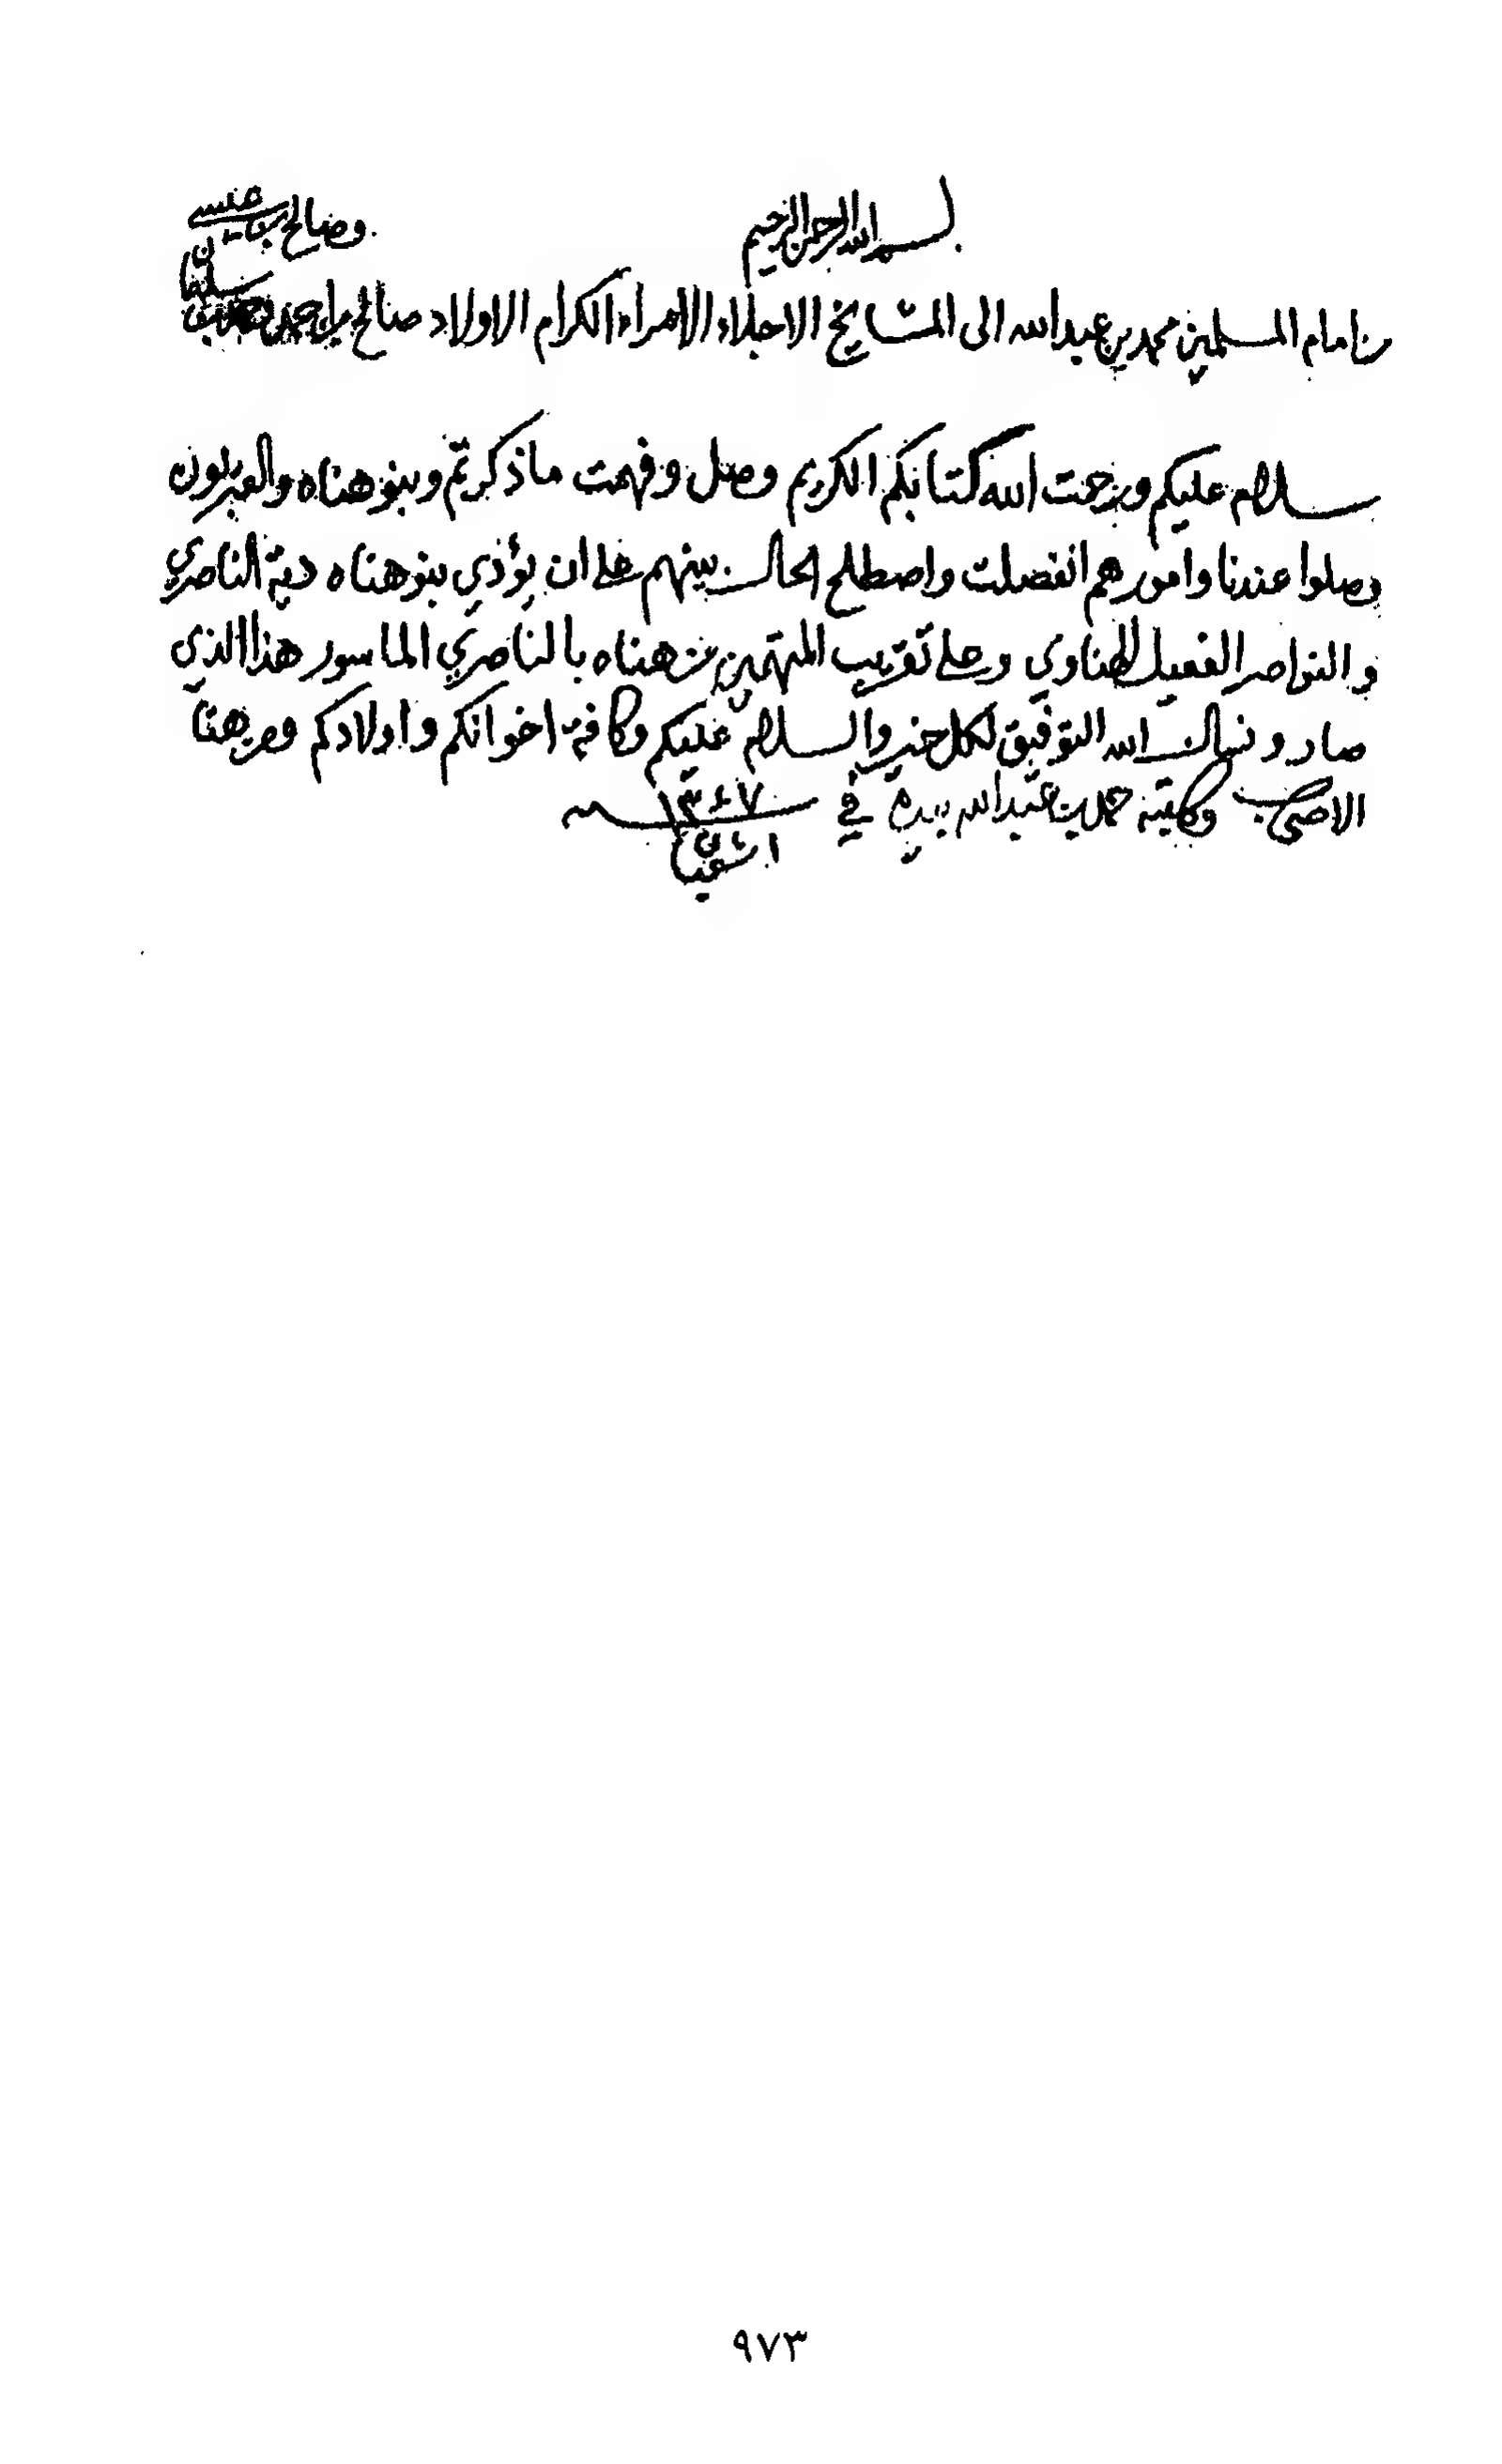 بسم الله الرحمن الرحيم
وصالح بن عيسى
من امام المسلمين محمد بن عبدالله الى المشايخ الاجلاء الامراء الكرام الاولاد صالح بن احمد
سليمان
سلام عليكم ورحمت الله كتابكم الكريم وصل وفهمت ما ذكرتم وبنو هناه والعبريون
وصلوا عندنا وامورهم انفصلت واصطلح الحال بينهم على ان يؤدي بنو هناه دية الناصري
والنواصر القعيل الهناوي وعلى تقريب المتهمين من هناه بالناصري الماسور هذا الذي
صار ونسال الله التوفيق لكل خير والسلام عليكم وكافة اخوانكم واولادكم ومن هنا
الاصحاب وكتبه محمد بن عبدالله بيده في ١٣٤٧
١ شعبان
٩٧٣